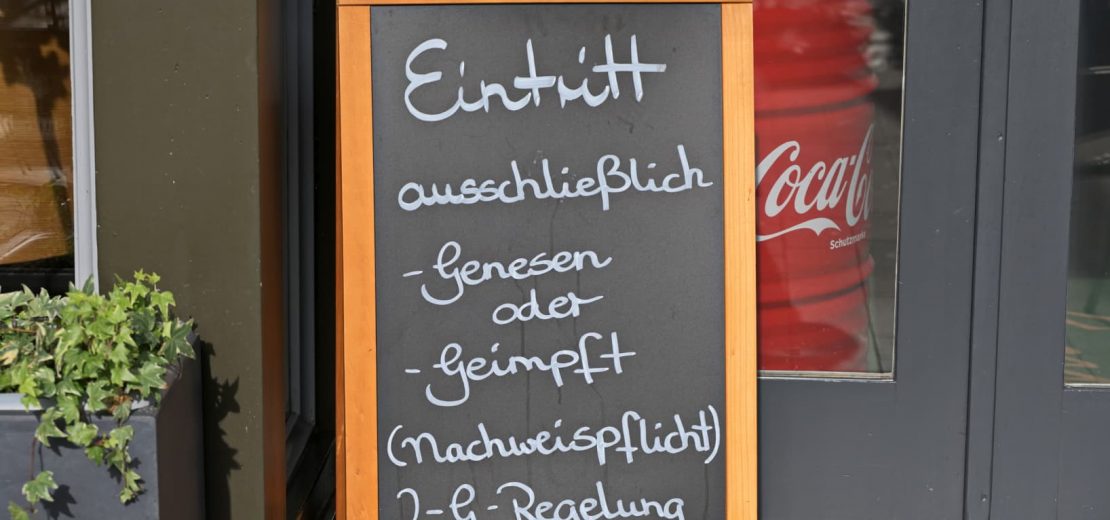 Eintritt
ausschließlich
- Genesen
oder
- Geimpft
(Nachweispflicht)
-G-Regelung
Coca-C
Schutzmarke